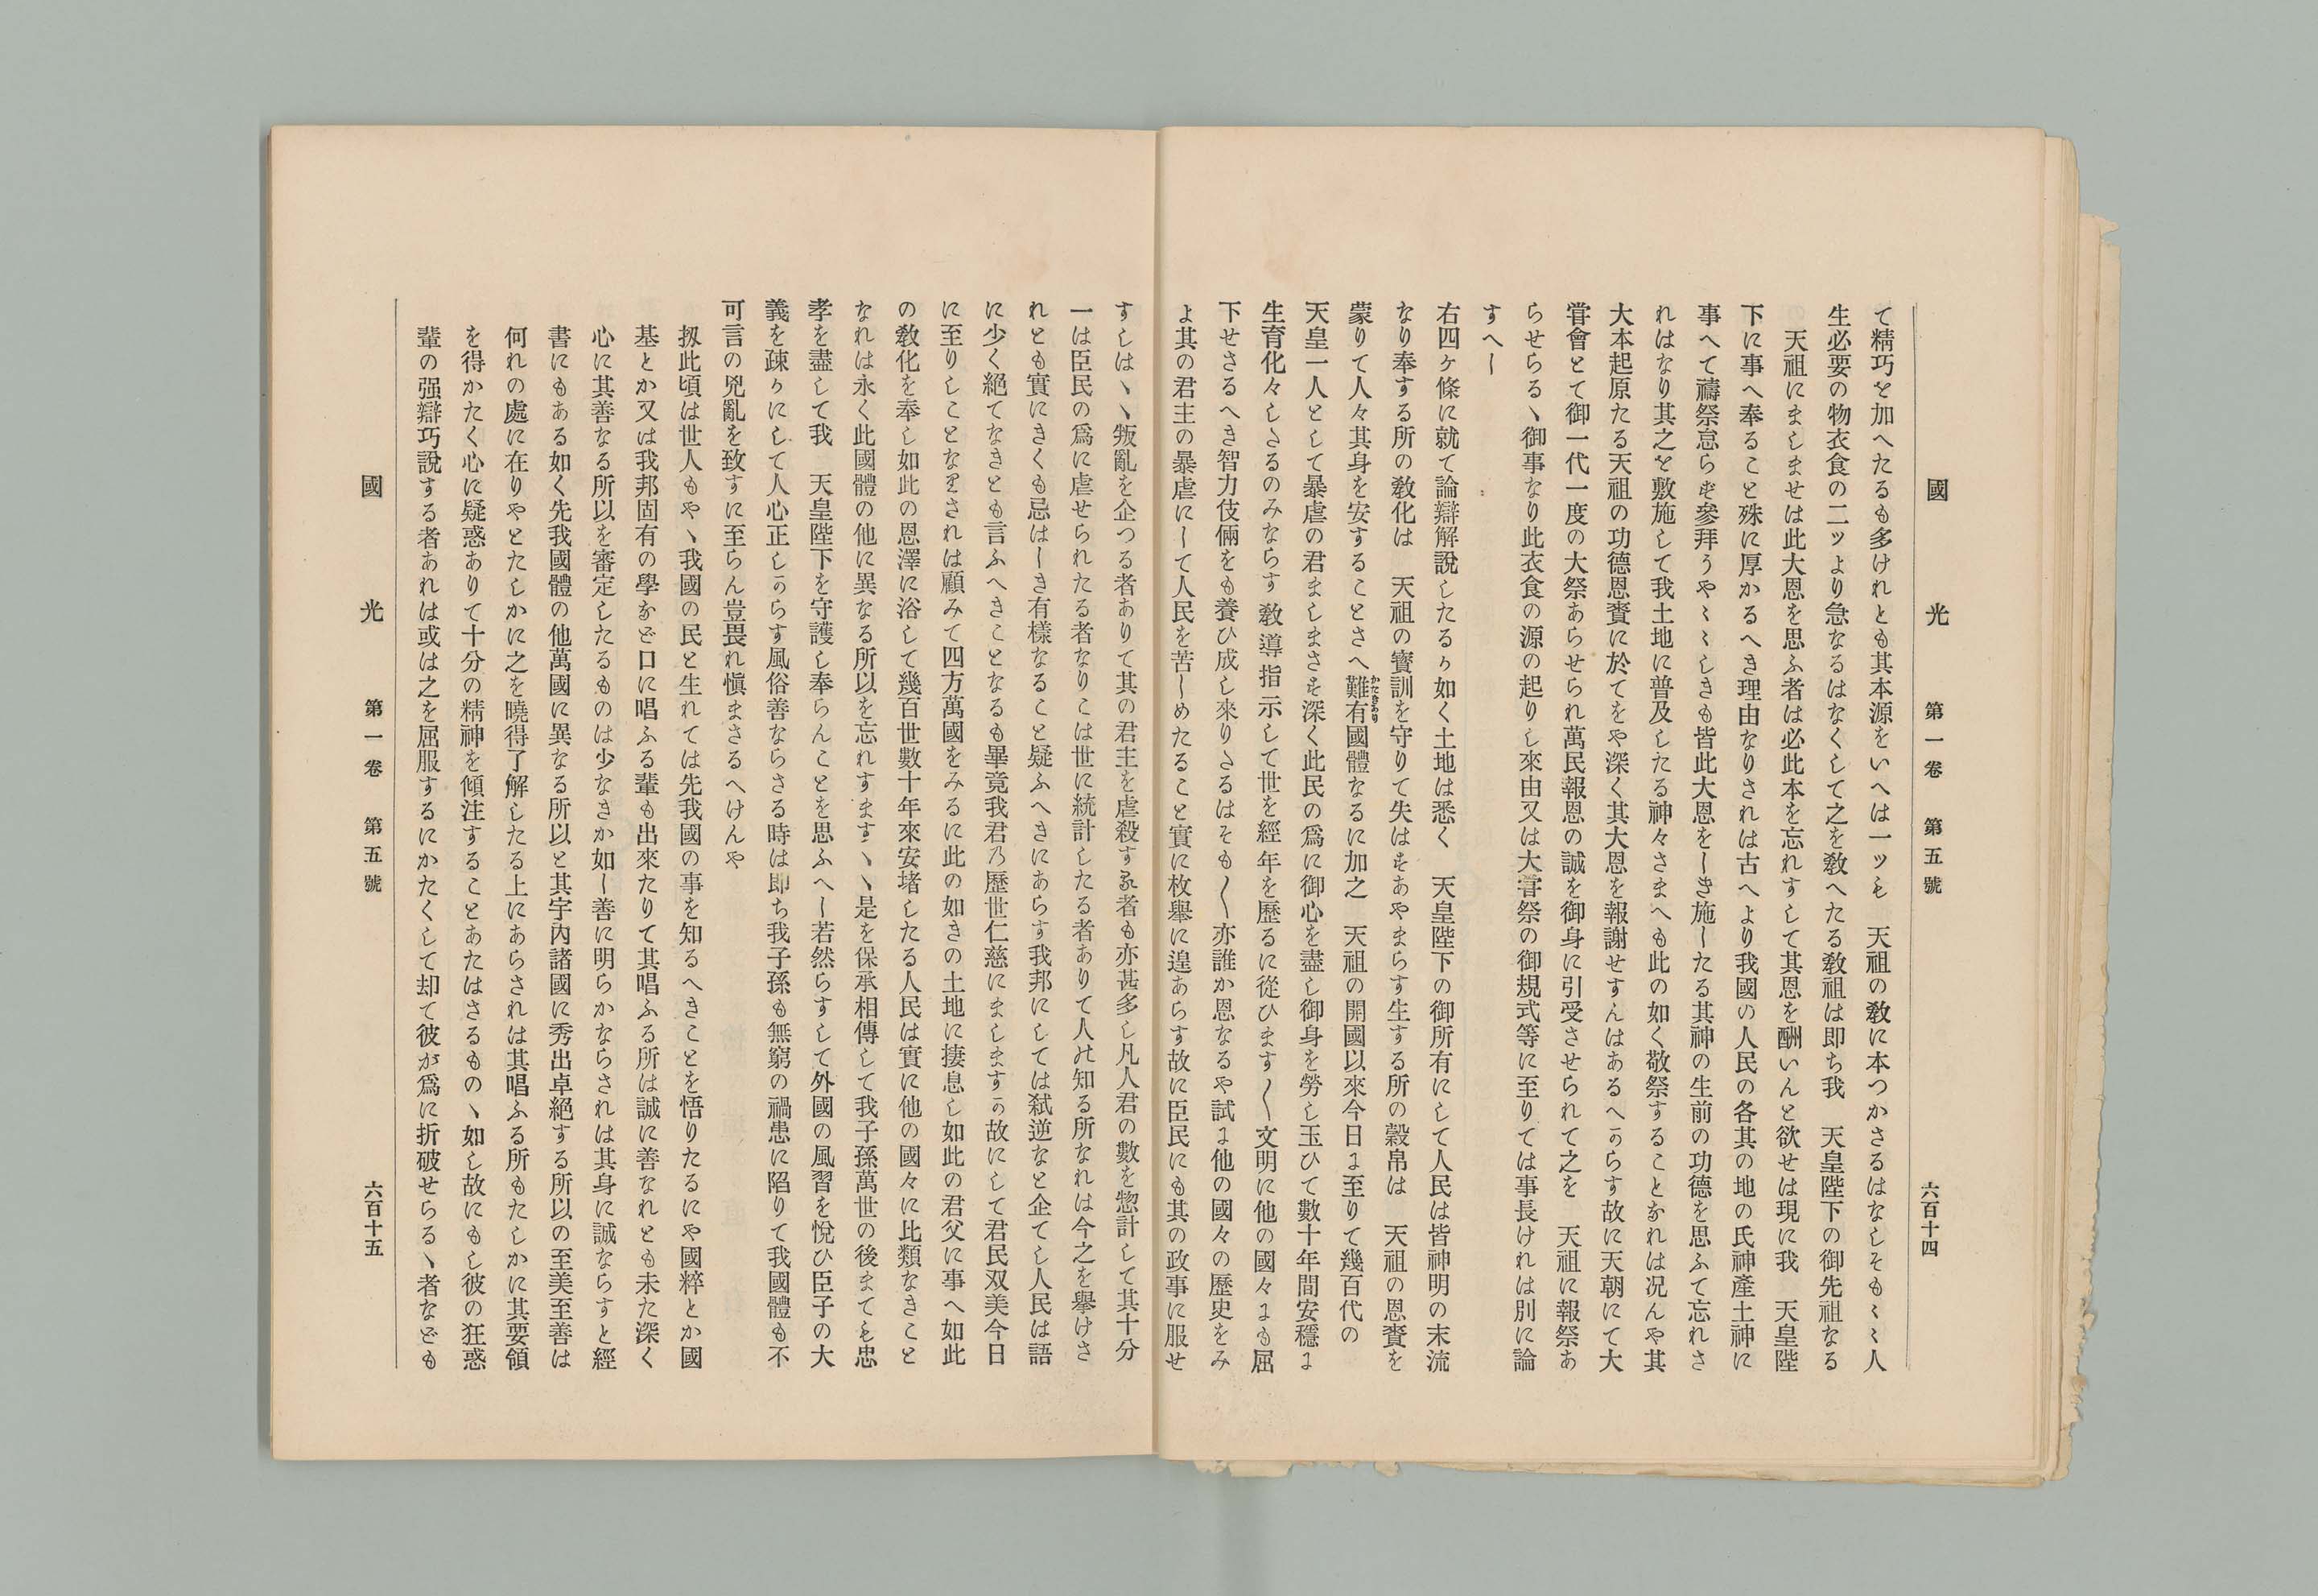 國光 第一卷 第五號 六百十四
て精巧を加へたるも多けれとも其本源をいへは一ッも 天祖の敎に本つかさるはなしそも〻〻人
生必要の物衣食の二ッより急なるはなくして之を敎へたる敎祖は即ち我 天皇陛下の御先祖なる
天祖にましませは此大恩を思ふ者は必此本を忘れすして其恩を酬いんと欲せは現に我 天皇陛
下に事へ奉ること殊に厚かるへき理由なりされは古へより我國の人民の各其の地の氏神產土神に
事へて禱祭怠らず參拜うや〻〻しきも皆此大恩をしき施したる其神の生前の功德を思ふて忘れさ
れはなり其之を敷施して我土地に普及したる神々さまへも此の如く敬祭することなれは况んや其
大本起原たる天祖の功德恩賚に於てをや深く其大恩を報謝せすんはあるへからす故に天朝にて大
甞會とて御一代一度の大祭あらせられ萬民報恩の誠を御身に引受させられて之を 天祖に報祭あ
らせらるヽ御事なり此衣食の源の起りし來由又は大甞祭の御規式等に至りては事長けれは別に論
すへし
右四ヶ條に就て論辯解說したるか如く土地は悉く 天皇陛下の御所有にして人民は皆神明の末流
なり奉する所の敎化は 天祖の寶訓を守りて失はすあやまらす生する所の穀帛は 天祖の恩賚を
蒙りて人々其身を安することさへ難有國體なるに加之 天祖の開國以來今日に至りて幾百代の
天皇一人として暴虐の君ましまさす深く此民の爲に御心を盡し御身を勞し玉ひて數十年間安穩に
生育化々しさるのみならす敎導指示して世を經年を歷るに從ひます〱文明に他の國々にも屈
下せさるへき智力伎倆をも養ひ成し來りさるはそも〱亦誰か恩なるや試に他の國々の歷史をみ
よ其の君主の暴虐にして人民を苦しめたること實に枚舉に遑あらす故に臣民にも其の政事に服せ
すしはヽヽ叛亂を企つる者ありて其の君主を虐殺する者も亦甚多し凡人君の數を惣計して其十分
一は臣民の爲に虐せられたる者なりこは世に統計したる者ありて人の知る所なれは今之を舉けさ
れとも實にきくも忌はしき有樣なること疑ふへきにあらす我邦にしては弒逆なと企てし人民は語
に少く絕てなきとも言ふへきことなるも畢竟我君乃歷世仁慈にましますか故にして君民双美今日
に至りしことなりされは顧みて四方萬國をみるに此の如きの土地に捿息し如此の君父に事へ如此
の敎化を奉し如此の恩澤に浴して幾百世數十年來安堵したる人民は實に他の國々に比類なきこと
なれは永く此國體の他に異なる所以を忘れすますヽヽ是を保承相傳して我子孫萬世の後まても忠
孝を盡して我 天皇陛下を守護し奉らんことを思ふへし若然らすして外國の風習を悅ひ臣子の大
義を疎かにして人心正しからす風俗善ならさる時は即ち我子孫も無窮の禍患に陷りて我國體も不
可言の兇亂を致すに至らん豈畏れ愼まさるへけんや
扱此頃は世人もやヽ我國の民と生れては先我國の事を知るへきことを悟りたるにや國粹とか國
基とか又は我邦固有の學など口に唱ふる輩も出來たりて其唱ふる所は誠に善なれとも未た深く
心に其善なる所以を審定したるものは少なきか如し善に明らかならされは其身に誠ならすと經
書にもある如く先我國體の他萬國に異なる所以と其宇內諸國に秀出卓絕する所以の至美至善は
何れの處に在りやとたしかに之を曉得了解したる上にあらされは其唱ふる所もたしかに其要領
を得かたく心に疑惑ありて十分の精神を傾注することあたはさるものヽ如し故にもし彼の狂惑
輩の强辯巧說する者あれは或は之を屈服するにかたくして却て彼が爲に折破せらるヽ者なども
國光 第一卷 第五號 六百十五